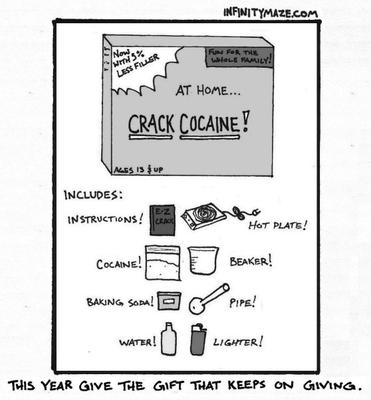 INFINITYMAZE.COM
NOW
WITH 5%
LESS FILLER
FUN FOR THE
WHOLE FAMILY!
AT HOME...
CRACK COCAINE!
AGES 13 & UP
INCLUDES:
INSTRUCTIONS!
E-Z
CRACK
HOT PLATE!
COCAINE!
BEAKER!
BAKING SODA!
PIPE!
WATER!
LIGHTER!
THIS YEAR GIVE THE GIFT THAT KEEPS ON GIVING.